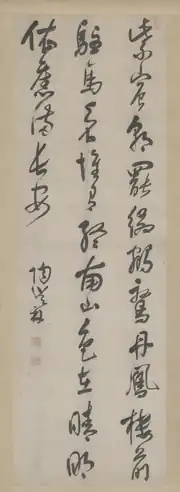 紫宸朝罷綴鵷鸞丹鳳樓前
駐馬看惟有終南山色在晴明
依舊滿長安
陶